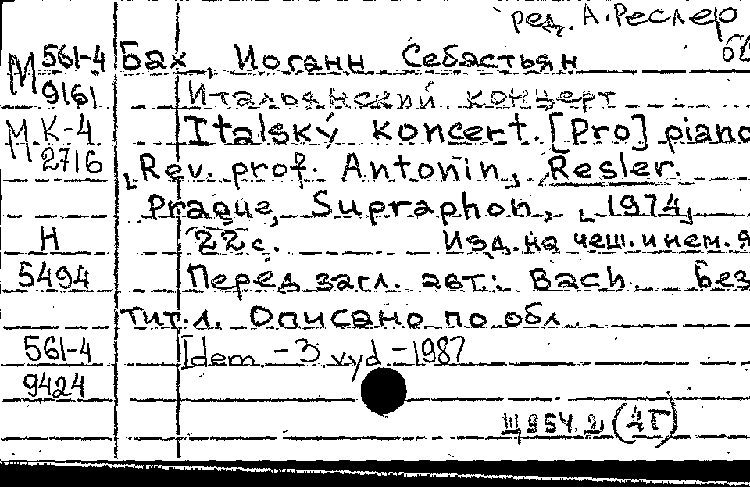 ред. А. Реслер
М 561-4 Бах, Иоганн Себастьян
9161 Итальянский концерт
М К-4 Italský koncert. [Pro] piano
2716 Rev. prof. Antonin, Resler.
Prague, Supraphon, 1974,
Н 22 с. Изд. на чеш. и нем. я
5494 Перед загл. авт.: Bach. Без
тит. л. Описано по обл.
561-4 Idem - 3 vyd - 1987
9424
Щ954.2 (4Г)